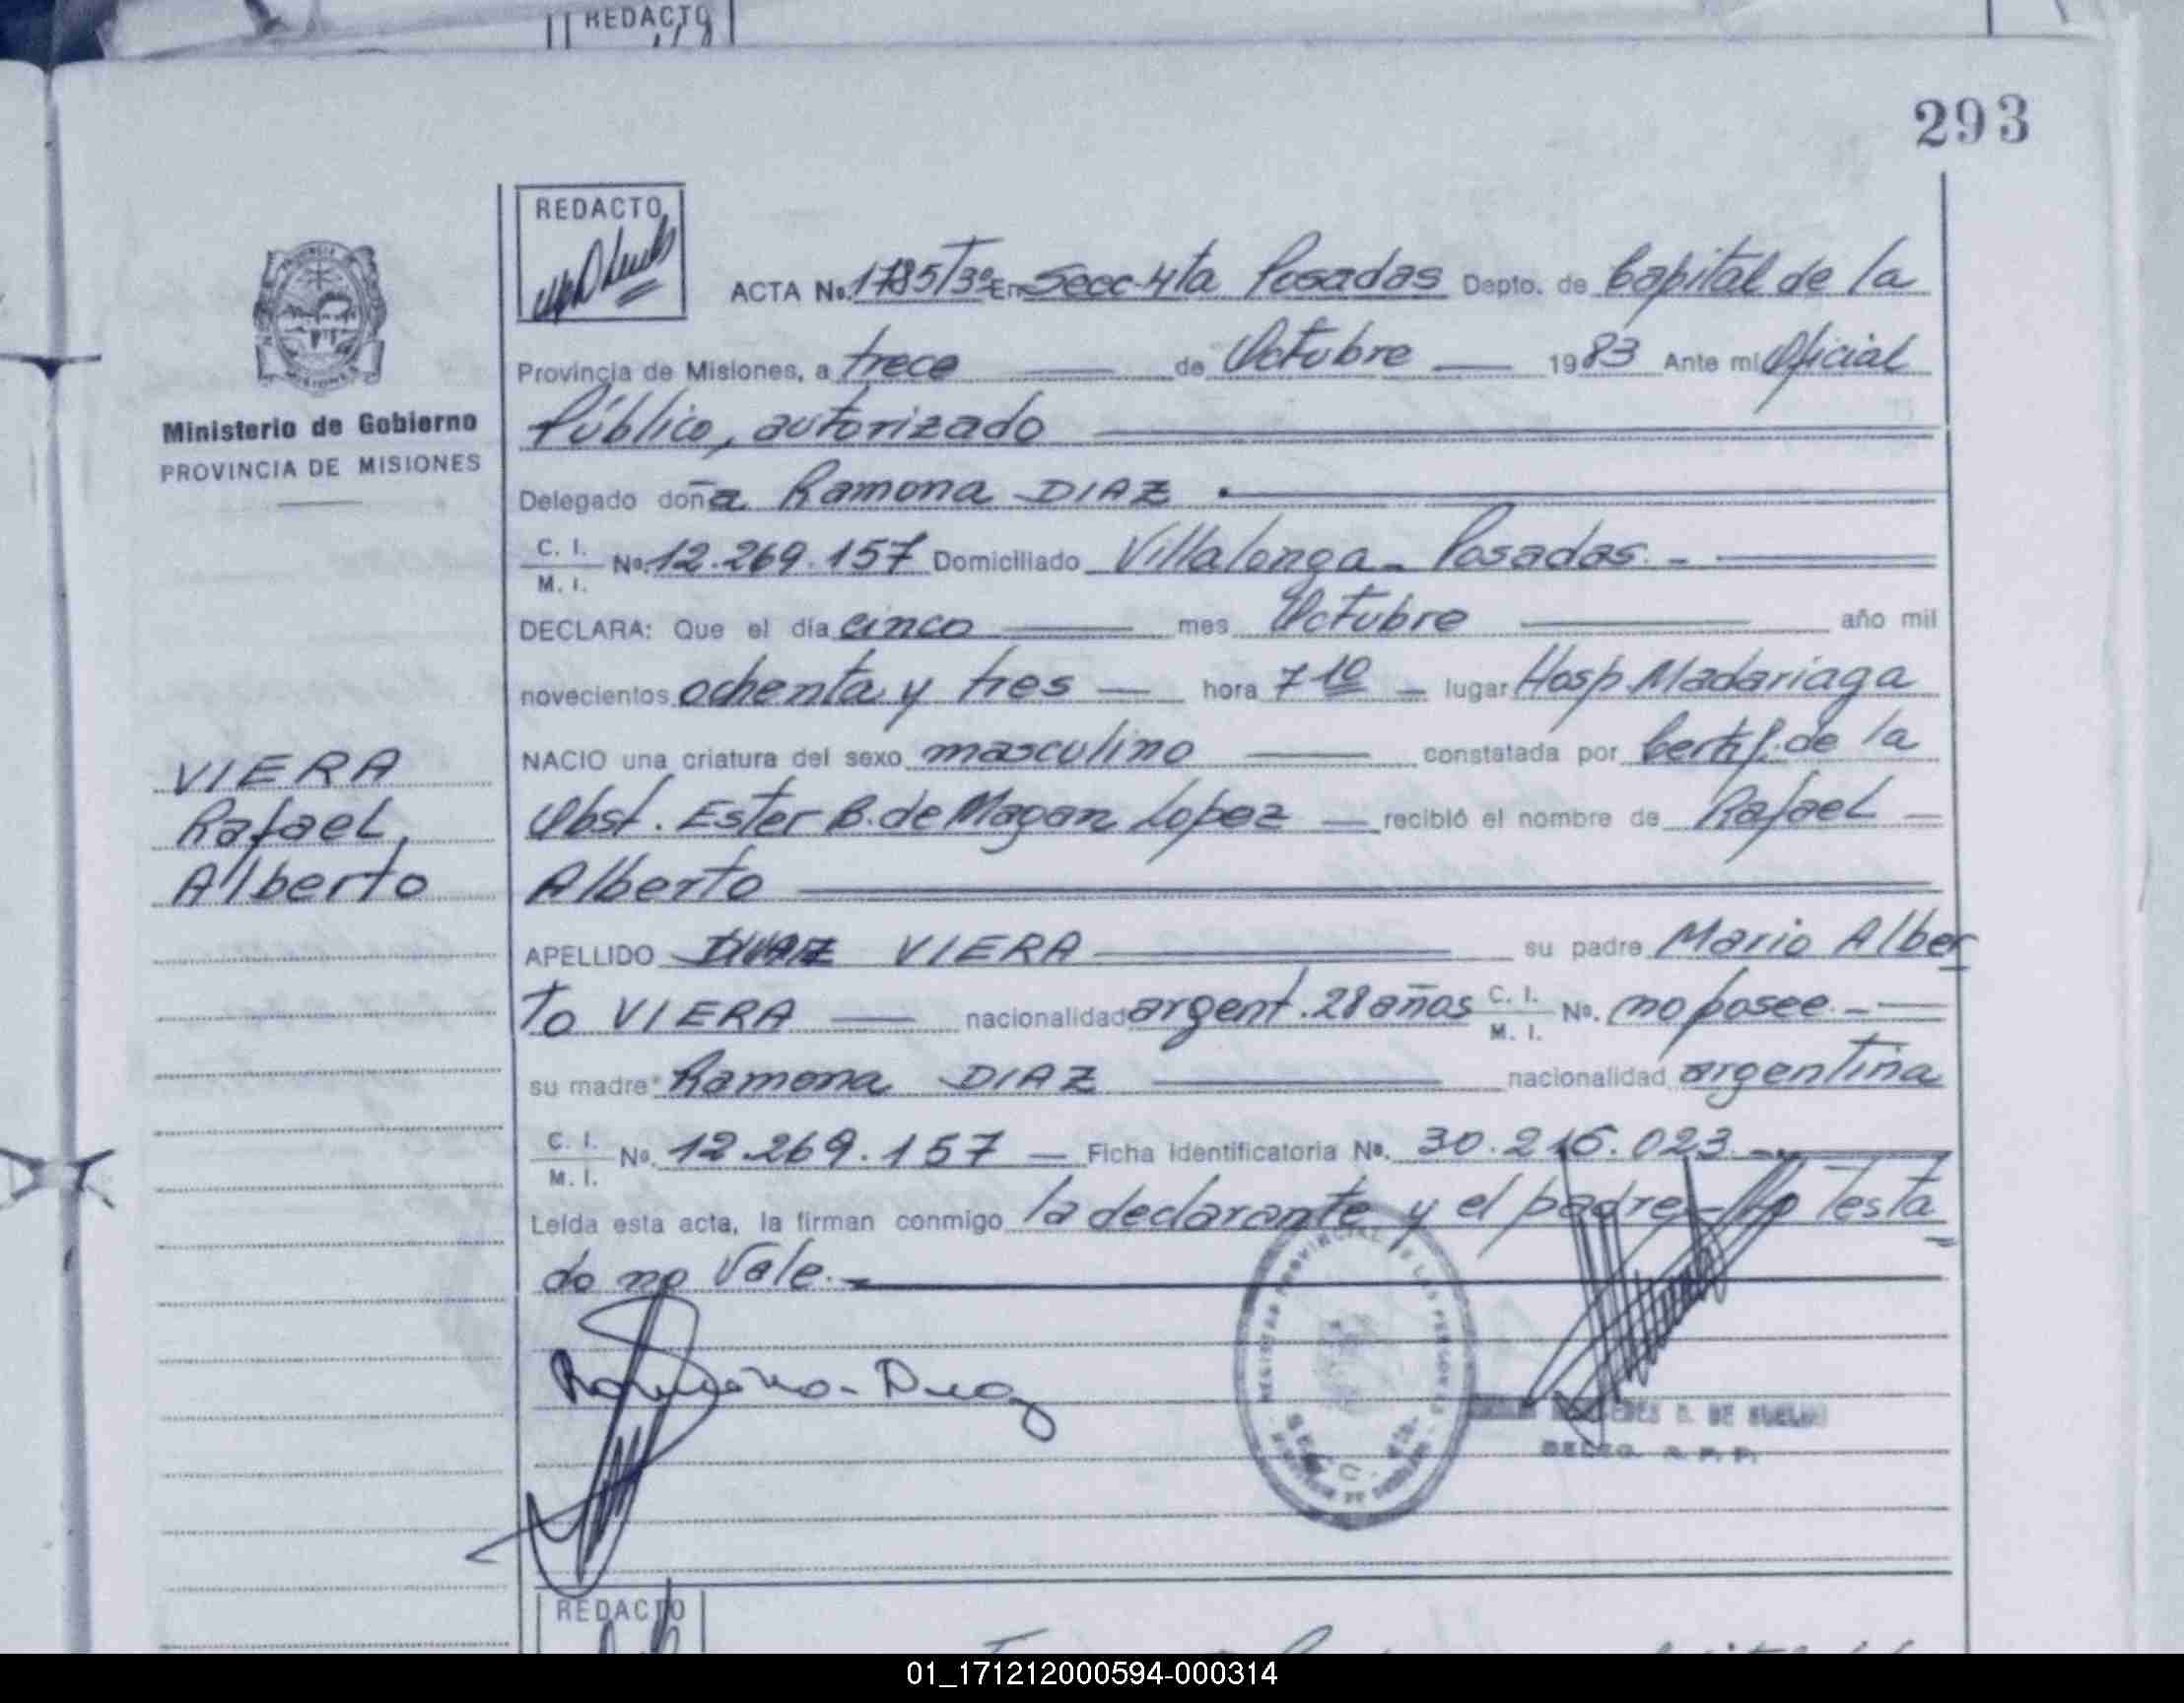 REDACTO
293
REDACTO
ACTA No. 1785/T3º En Secc 4ta Posadas Depto. de Capital de la
Provincia de Misiones, a trece de Octubre 1983 Ante mi Oficial
Ministerio de Gobierno
PROVINCIA DE MISIONES
Público, autorizado
Delegado doña Ramona DIAZ.
C. I.
M. I.
No. 12.269.157 Domiciliado Villalonga - Posadas. -
DECLARA: Que el día cinco mes Octubre año mil
novecientos ochenta y tres — hora 7 10 — lugar Hosp. Madariaga
NACIO una criatura del sexo masculino constatada por Certif. de la
Obst. Ester B. de Magan Lopez — recibió el nombre de Rafael —
Alberto
VIERA
Rafael,
Alberto
APELLIDO VIERA su padre Mario Alber
to VIERA — nacionalidad argent. 28 años C. I. M. I. No. no posee. -
su madre Ramona DIAZ nacionalidad argentina
C. I.
M. I.
No. 12.269.157 — Ficha Identificatoria No. 30.216.023. -
Leída esta acta, la firman conmigo la declarante y el padre. Testa
do no Vale. -
Ramona - Diaz
REGISTRO PROVINCIAL DE LAS PERSONAS
DE SUELDO
R. P. P.
REDACTO
01_171212000594-000314